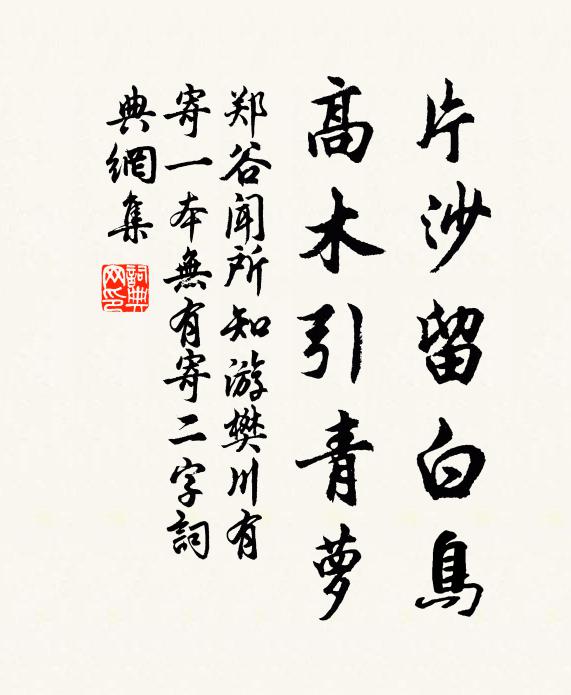 片沙留白鳥
高木引青萝
郑谷聞所知游樊川有
寄一本無有寄二字詞
典網集
詞典网印